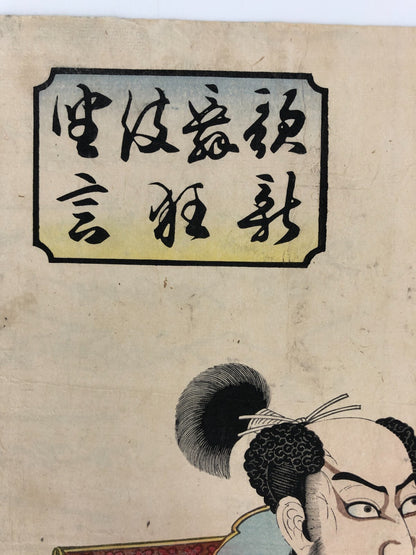 歌舞伎座
新狂言